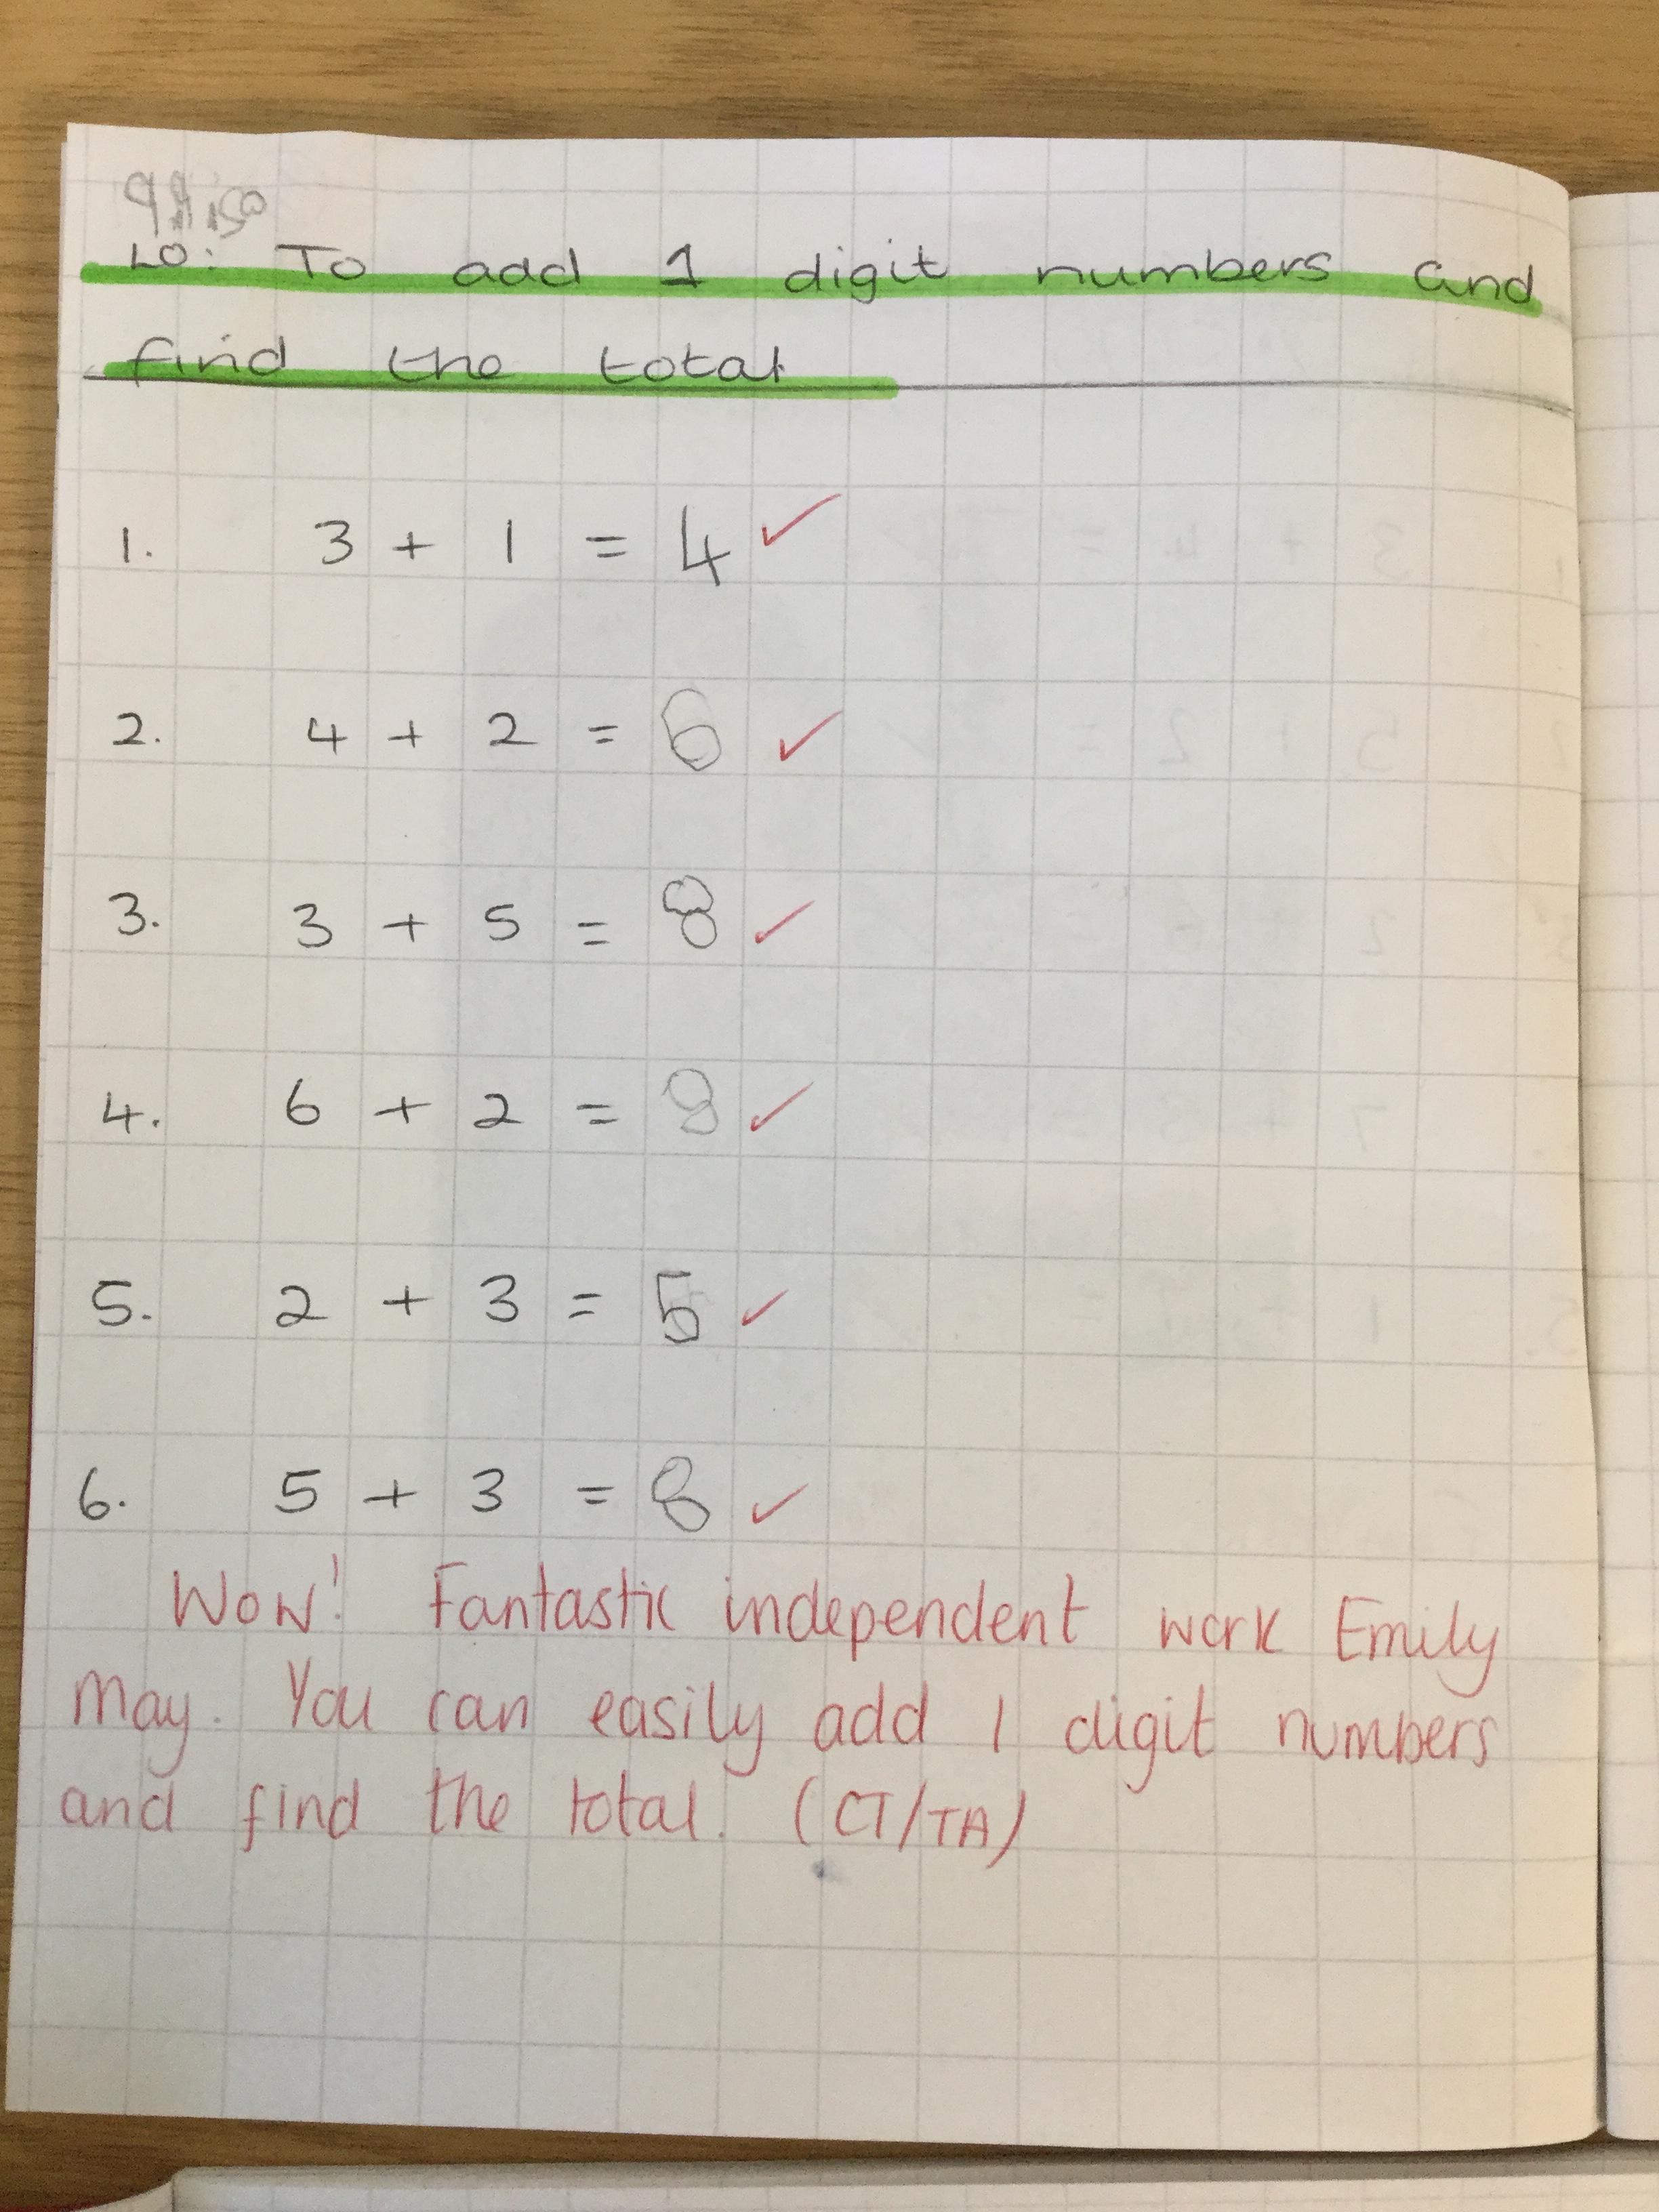 LO: To add 1 digit numbers and
find the total
1. 3 + 1 = 4 ✓
2. 4 + 2 = 6 ✓
3. 3 + 5 = 8 ✓
4. 6 + 2 = 8 ✓
5. 2 + 3 = 5 ✓
6. 5 + 3 = 8 ✓
Wow! Fantastic independent work Emily
May. You can easily add 1 digit numbers
and find the total. (CT/TA)